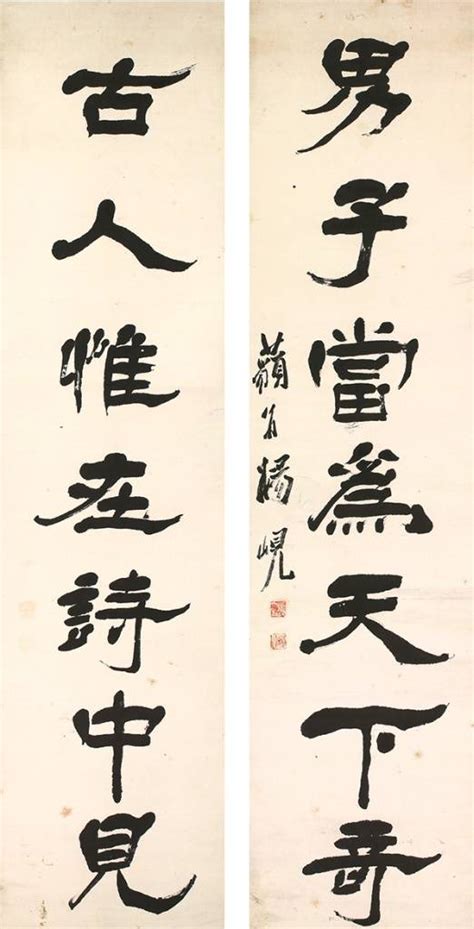 男子當爲天下奇
藐翁楊峴
古人惟在詩中見